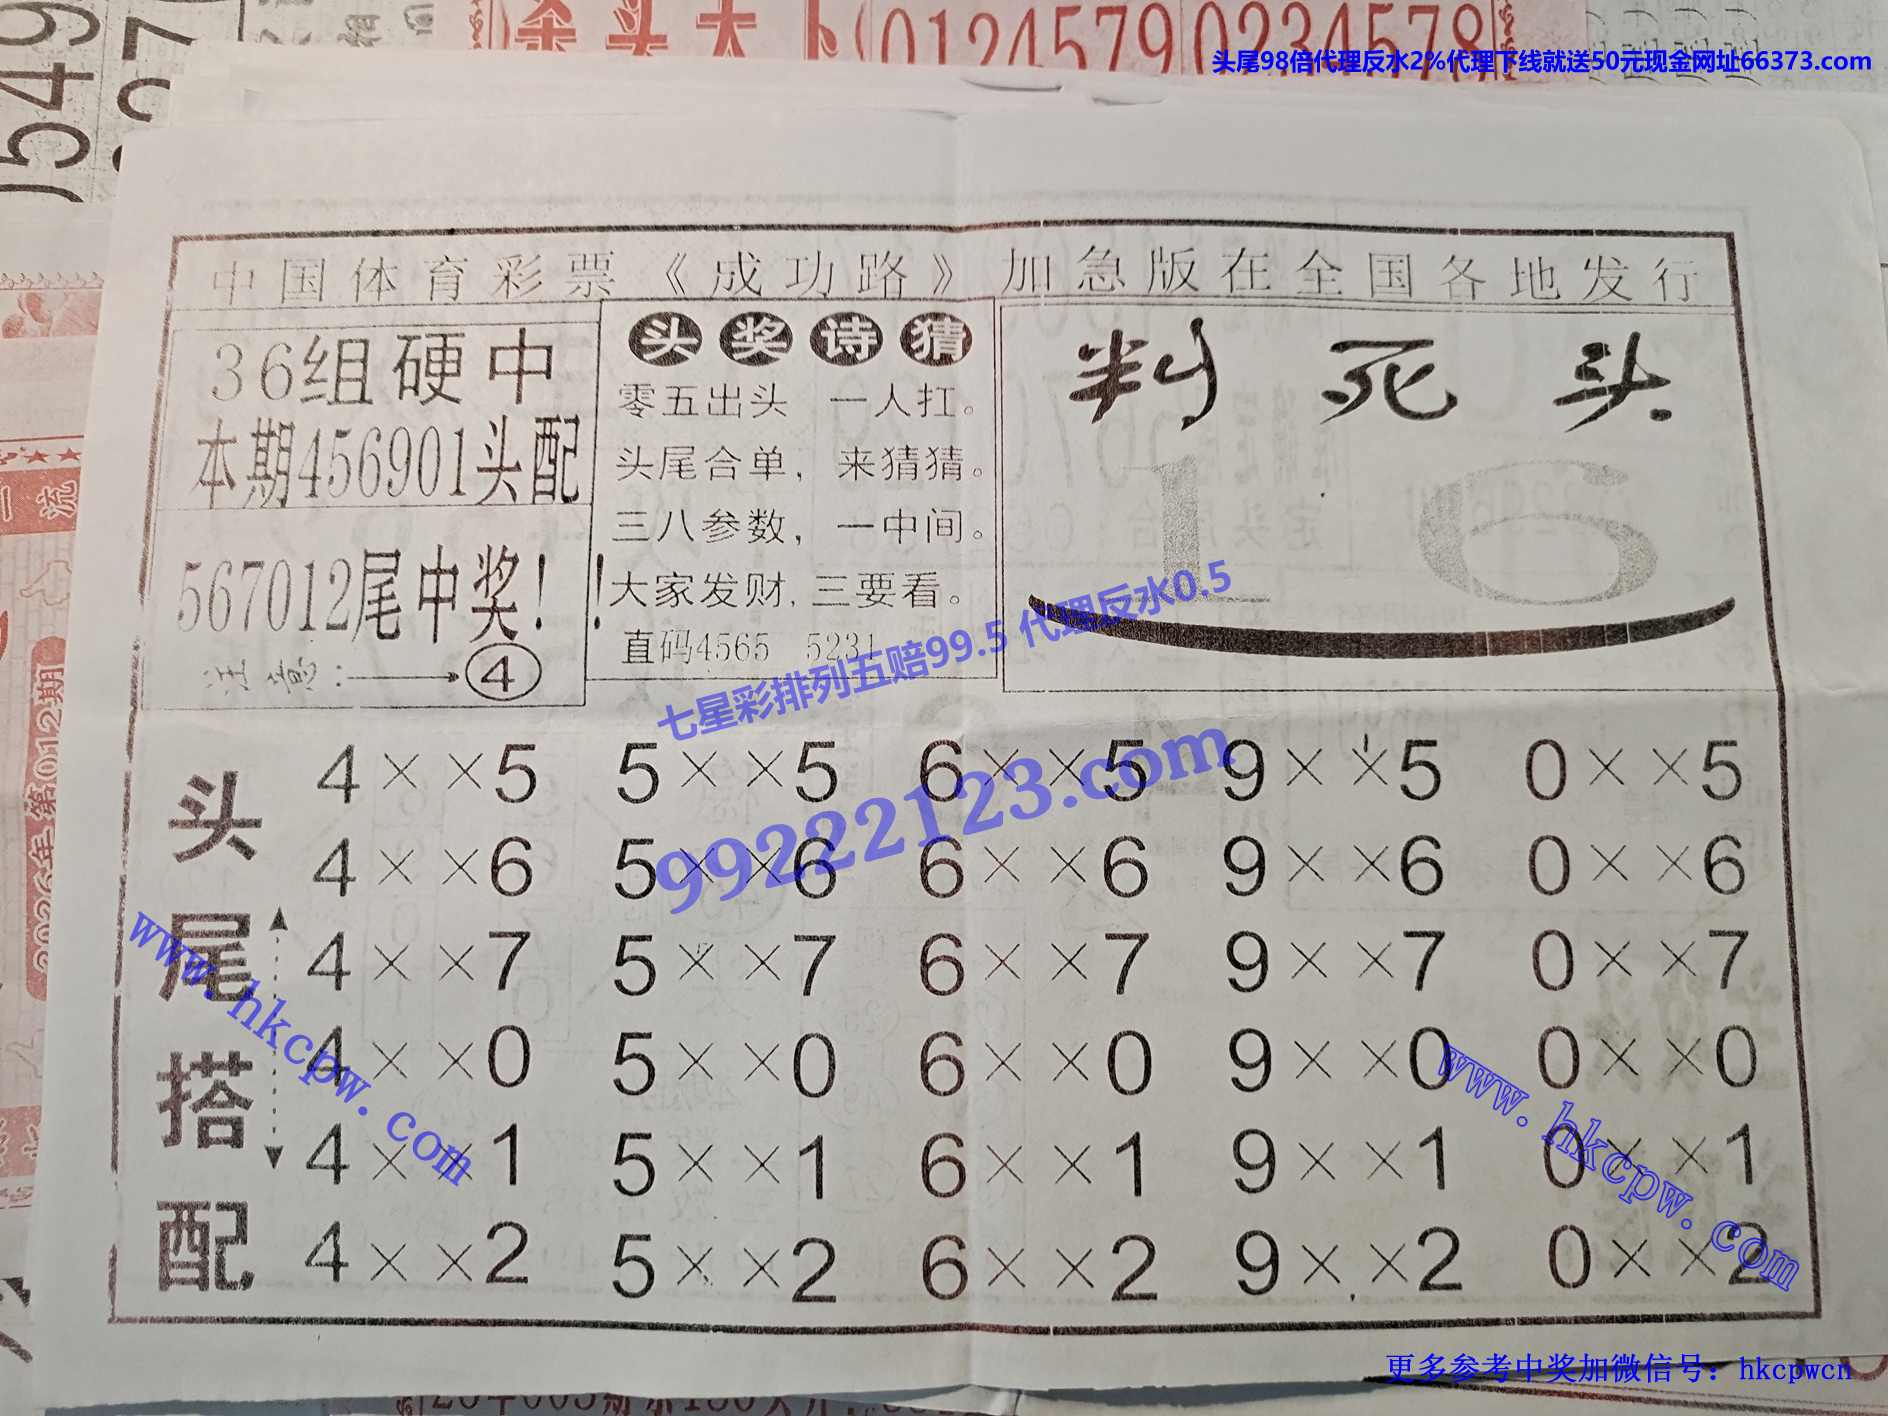 01245790234578
头尾98倍代理反水2%代理下线就送50元现金网址66373.com
中国体育彩票《成功路》加急版在全国各地发行
36组硬中
本期456901头配
567012尾中奖！！
注意：④
头奖诗猜
零五出头 一人扛。
头尾合单， 来猜猜。
三八参数， 一中间。
大家发财，三要看。
直码4565 5231
判死头
1 6
七星彩排列五赔99.5 代理反水0.5
99222123.com
头尾搭配
4××5 5××5 6××5 9××5 0××5
4××6 5××6 6××6 9××6 0××6
4××7 5××7 6××7 9××7 0××7
4××0 5××0 6××0 9××0 0××0
4××1 5××1 6××1 9××1 0××1
4××2 5××2 6××2 9××2 0××2
www.hkcpw.com
www.hkcpw.com
2026年第012期
更多参考中奖加微信号：hkcpwcn